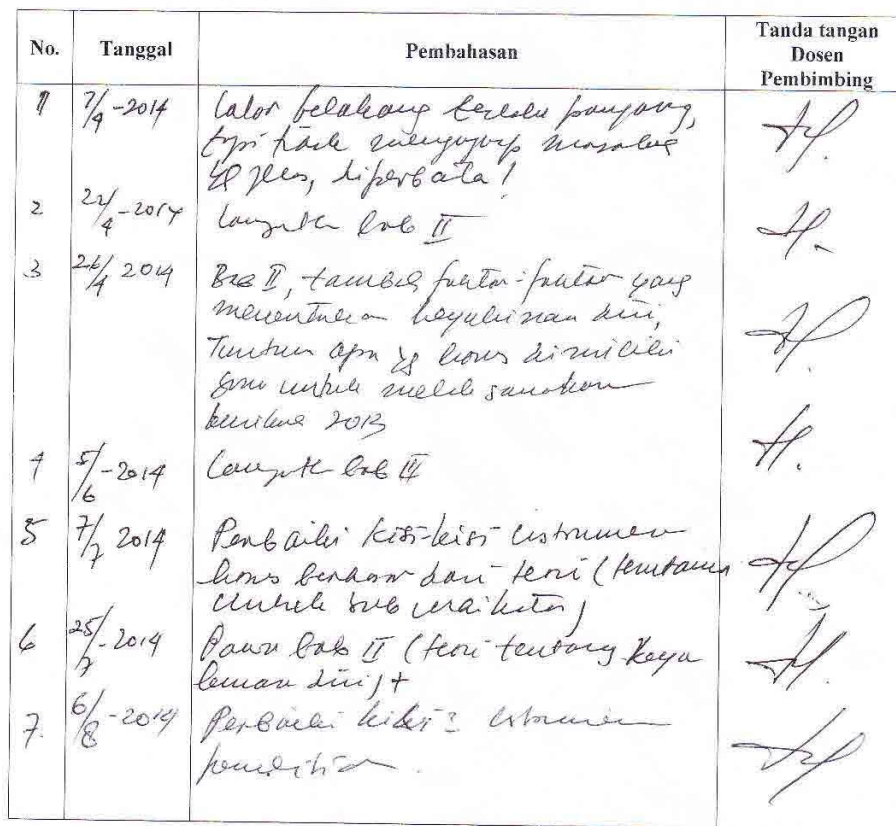 No. Tanggal Pembahasan Tanda tangan Dosen Pembimbing
1 7/4-2014 Latar belakang terlalu panjang,
tapi tidak masalah
yg jelas, diperbaiki!
2 22/4-2014 Lanjutkan bab II
3 26/4 2014 Bab II, tambah faktor-faktor yang
menentukan keyakinan diri,
Tuntutan apa yg harus dimiliki
guru untuk melaksanakan
2013
4 5/6-2014 Lanjutkan bab III
5 7/7 2014 Perbaiki kisi-kisi instrumen
harus berdasar dari teori (terutama
untuk sub indikator)
6 25/7-2014 bab II (teori tentang keya
kinan diri) +
7. 6/8-2014 Perbaiki kisi2 instrumen
penelitian.